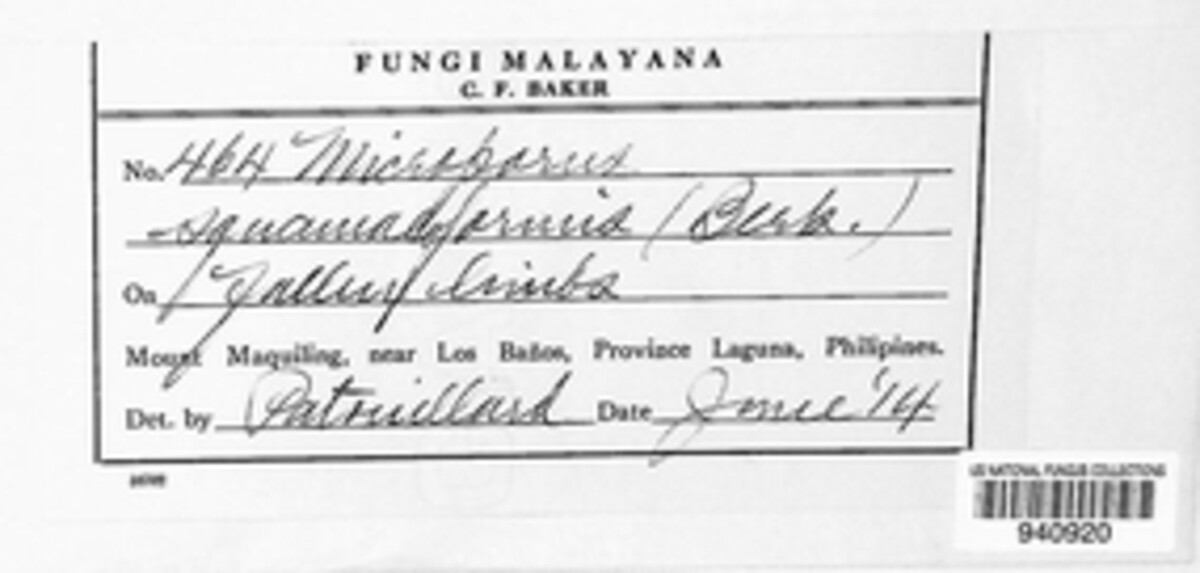 FUNGI MALAYANA
C. F. BAKER
No. 464 Microporus
squamaeformis (Berk.)
On Fallen limbs
Mount Maquiling, near Los Baños, Province Laguna, Philipines.
Det. by Patouillard Date June '14
US NATIONAL FUNGUS COLLECTIONS
940920